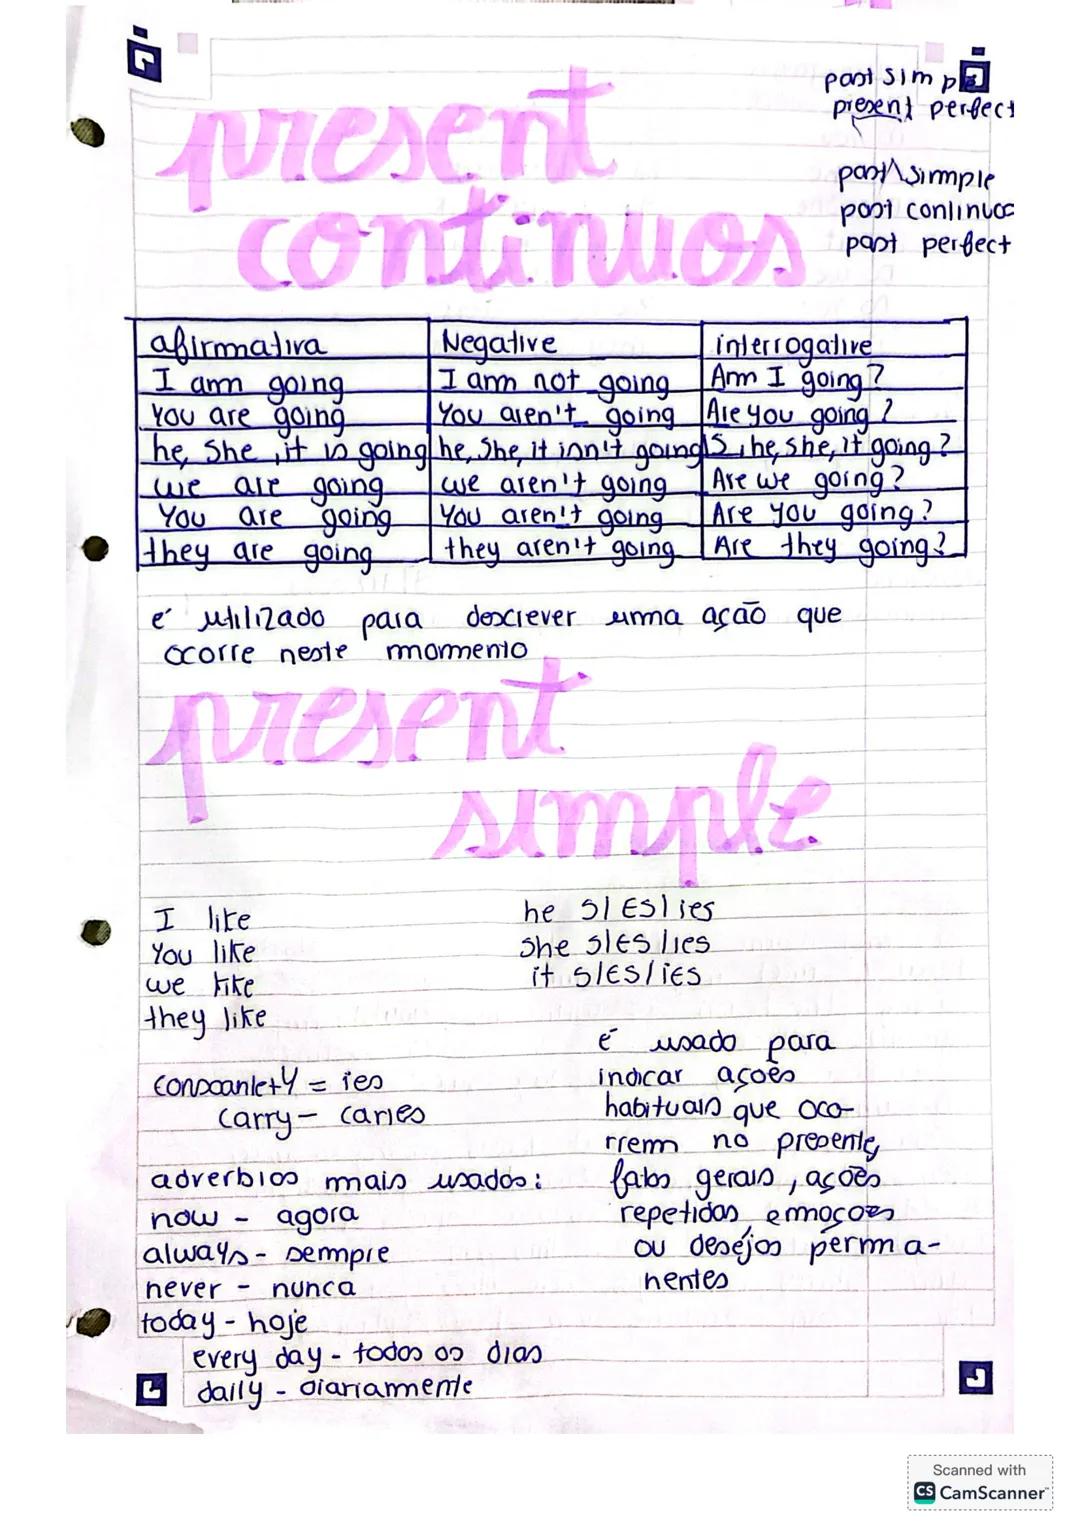 past simp
present perfect
past simple
past continuo
past perfect
present
continuos
afirmativa Negative interrogative
I am going I am not going Am I going?
You are going You aren't going Are you going?
he, she, it is going he, she, it isn't going IS, he, she, it going?
we are going we aren't going Are we going?
You are going You aren't going Are you going?
they are going they aren't going Are they going?
é utilizado para descrever uma ação que
ocorre neste momento
present
simple
I like
You like
we like
they like
he s/ES/ies
she s/ES/ies
it s/ES/ies
consoante+Y = ies
carry - carries
é usado para
indicar ações
habituais que oco-
rrem no presente,
fatos gerais, ações
repetidas, emoções
ou desejos perma-
nentes
adverbios mais usados:
now - agora
always - sempre
never - nunca
today - hoje
every day - todos os dias
daily - diariamente
Scanned with
CS CamScanner